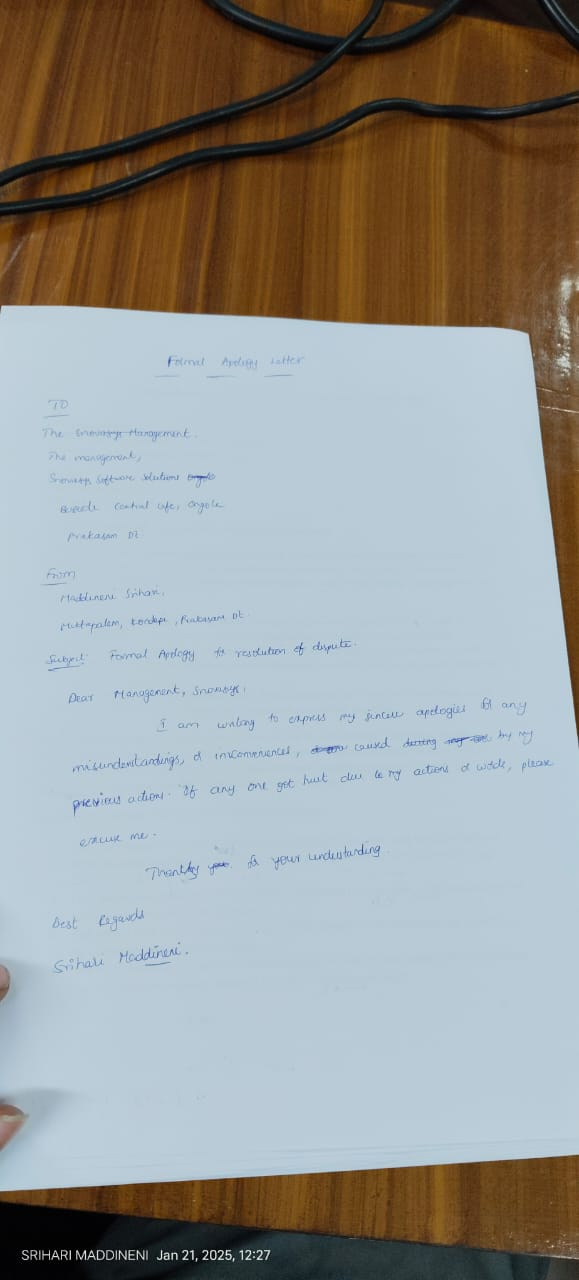 Formal Apology Letter
TO
The Snovasys Management.
The management,
Snovasys Software Solutions ongole
Beside Central cafe, Ongole
Prakasam Dt
From
Maddineni Srihari,
Muttapalem, Kondepi, Prakasam Dt.
Subject: Formal Apology for resolution of dispute.
Dear Management, Snovasys,
I am writing to express my sincere apologies for any
misunderstandings, or inconveniences, caused during by my
previous actions. If any one got hurt due to my actions or words, please
excuse me.
Thanking you. for your understanding.
Best Regards
Srihari Maddineni.
SRIHARI MADDINENI Jan 21, 2025, 12:27